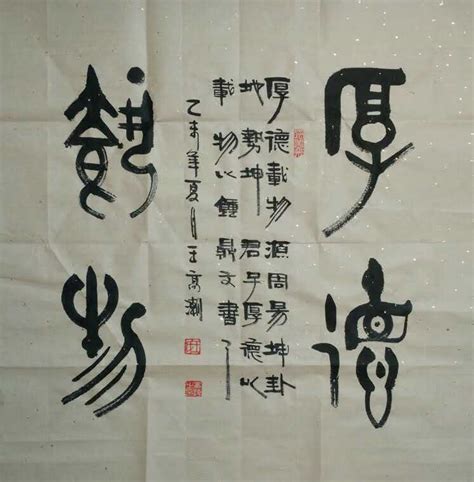 厚德
載物
厚德載物源周易坤卦
地勢坤君子厚德以
載物以鐘鼎文書之
乙未年夏月王高